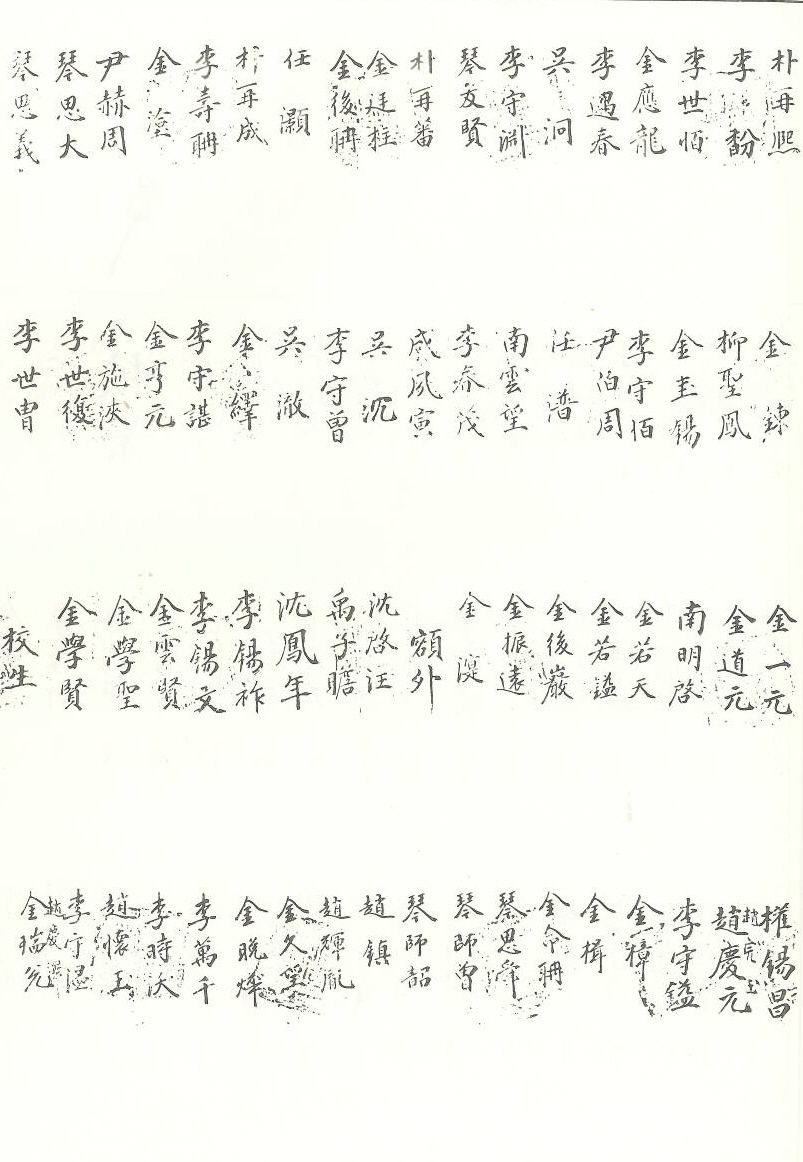 朴再熙
李馚
李世恒
金應龍
李遇春
吳泂
李守淵
琴友賢
朴再蕃
金廷柱
金後聃
任灝
朴再成
李壽聃
金瀅
尹赫周
琴思大
琴思義
金鍊
柳聖鳳
金圭錫
李守佰
尹伯周
任潽
南雲望
李春茂
成夙寅
吳沉
李守曾
吳澈
金繹
李守諶
金亨元
金施浹
李世復
李世胄
金一元
金道元
南明啓
金若天
金若鎰
金後巖
金振遠
金
額外
沈啓汪
禹子瞻
沈鳳年
李錫祚
李錫文
金雲賢
金學聖
金學賢
校生
權錫昌
趙完玉
趙慶元
李守鎰
金樟
金楫
金命聃
琴思舜
琴師曾
琴師韶
趙鎮
趙輝胤
金久堅
金晚燁
李萬千
李時沃
趙懷玉
李守溫
趙慶
金瑞允